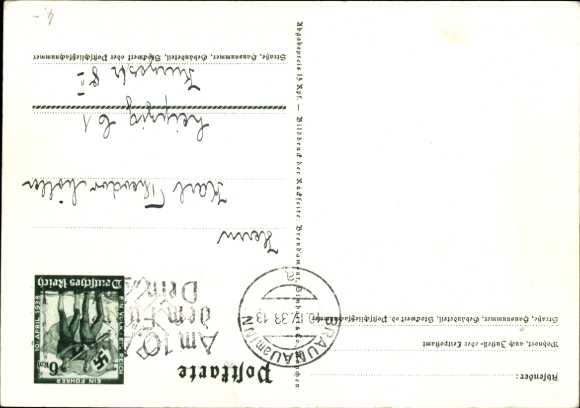 Postkarte
Absender:
Wohnort, auch Zustell- oder Leitpostamt
Straße, Hausnummer, Gebäudeteil, Stockwerk oder Postschließfachnummer
EIN VOLK EIN REICH
EIN FÜHRER
6 Rpf
10. APRIL 1938
Deutsches Reich
Am 10. A
dem Führer
Dein
BRAUNAU am INN
10.IV.38.13
a
Herrn
Karl Theodor Müller
Leipzig C 1
Straße, Hausnummer, Gebäudeteil, Stockwerk oder Postschließfachnummer
Abgabepreis 15 Rpf. — Bilddruck der Rückseite:
4.-